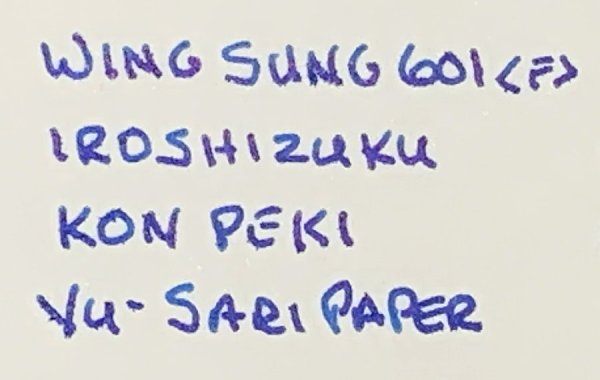 WING SUNG 601 <F>
IROSHIZUKU
KON PEKI
YU-SARI PAPER